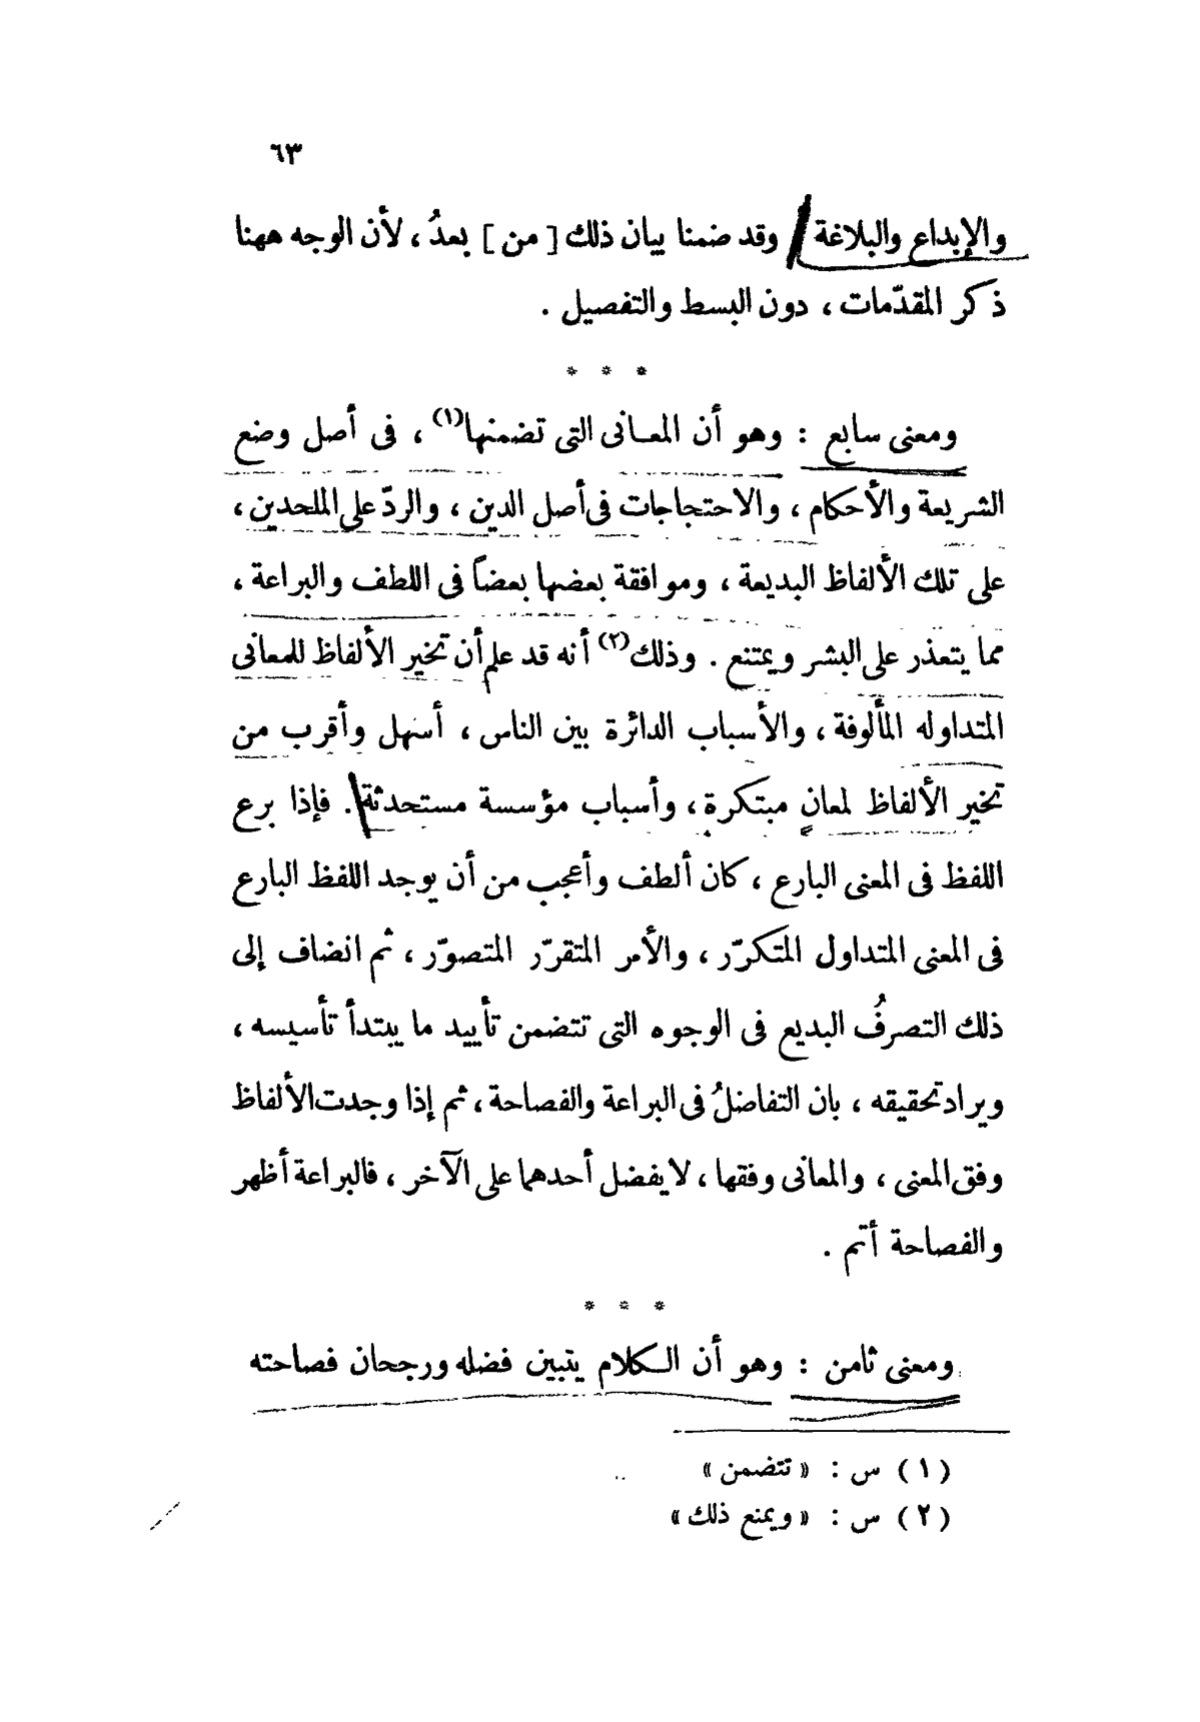 ٦٣
والإبداع والبلاغة / وقد ضمنا بيان ذلك [ من ] بعدُ ، لأن الوجه ههنا
ذكر المقدّمات ، دون البسط والتفصيل .
* * *
ومعنى سابع : وهو أن المعانى التى تضمنها(١) ، فى أصل وضع
الشريعة والأحكام ، والاحتجاجات فى أصل الدين ، والردّ على الملحدين ،
على تلك الألفاظ البديعة ، وموافقة بعضها بعضاً فى اللطف والبراعة ،
مما يتعذر على البشر ويمتنع . وذلك(٢) أنه قد علم أن تخير الألفاظ للمعانى
المتداوله المألوفة ، والأسباب الدائرة بين الناس ، أسهل وأقرب من
تخير الألفاظ لمعانٍ مبتكرة ، وأسباب مؤسسة مستحدثة . فإذا برع
اللفظ فى المعنى البارع ، كان ألطف وأعجب من أن يوجد اللفظ البارع
فى المعنى المتداول المتكرّر ، والأمر المتقرّر المتصوّر ، ثم انضاف إلى
ذلك التصرفُ البديع فى الوجوه التى تتضمن تأييد ما يبتدأ تأسيسه ،
ويراد تحقيقه ، بان التفاضلُ فى البراعة والفصاحة ، ثم إذا وجدت الألفاظ
وفق المعنى ، والمعانى وفقها ، لا يفضل أحدهما على الآخر ، فالبراعة أظهر
والفصاحة أتم .
* * *
ومعنى ثامن : وهو أن الكلام يتبين فضله ورجحان فصاحته
(١) س : « تتضمن »
(٢) س : « ويمنع ذلك »